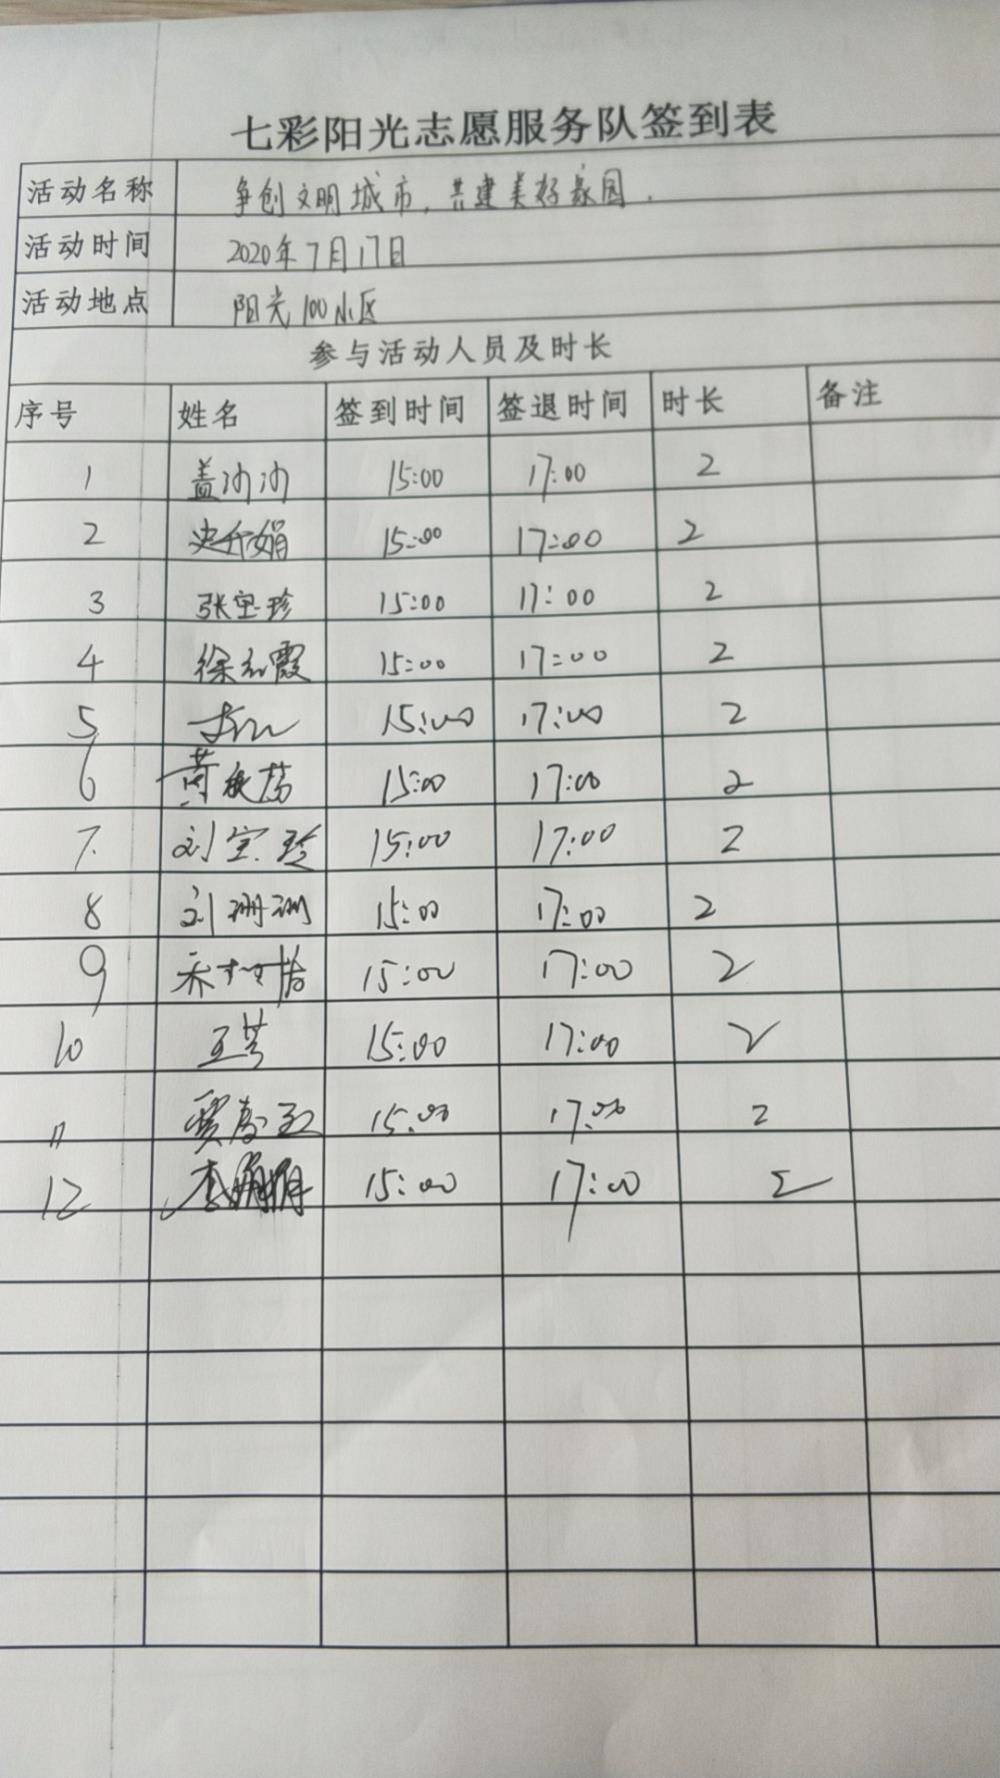 七彩阳光志愿服务队签到表
活动名称 争创文明城市，共建美好家园.
活动时间 2020年7月17日
活动地点 阳光100小区
参与活动人员及时长
序号 姓名 签到时间 签退时间 时长 备注
1 盖沙沙 15:00 17:00 2
2 15:00 17:00 2
3 张宝珍 15:00 17:00 2
4 15:00 17:00 2
5 15:00 17:00 2
6 15:00 17:00 2
7. 刘宝珍 15:00 17:00 2
8 刘珊珊 15:00 17:00 2
9 15:00 17:00 2
10 王芳 15:00 17:00 2
11 15:00 17:00 2
12 15:00 17:00 2